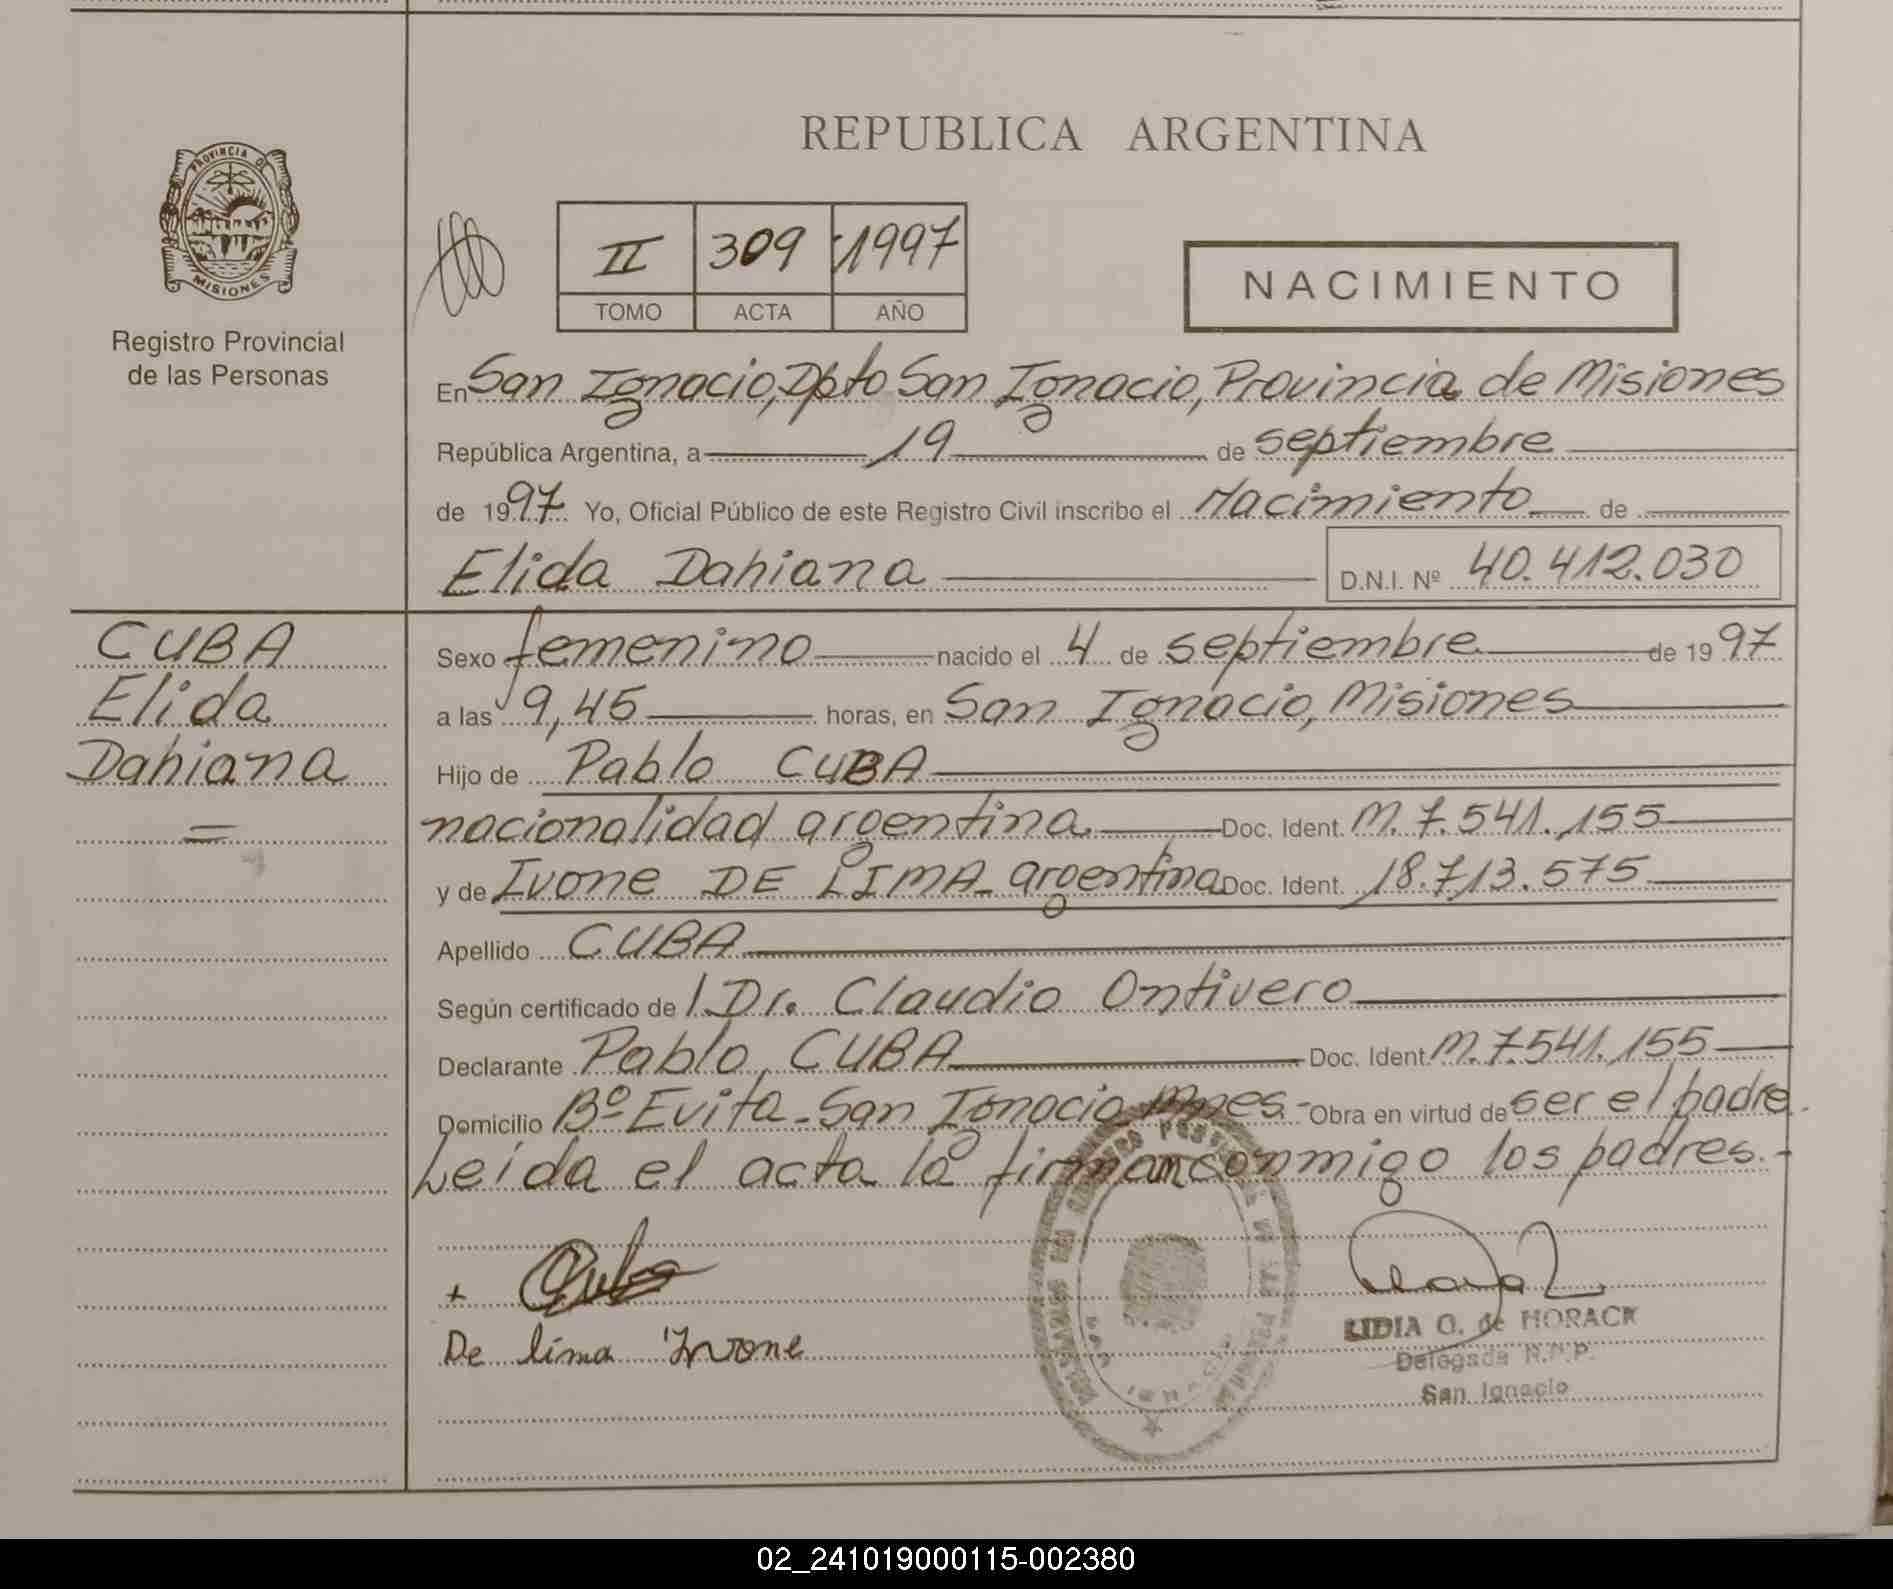 REPUBLICA ARGENTINA
PROVINCIA DE
MISIONES
Registro Provincial
de las Personas
II 309 1997
TOMO ACTA AÑO
NACIMIENTO
En San Ignacio, Dpto San Ignacio, Provincia de Misiones
República Argentina, a 19 de septiembre
de 1997 Yo, Oficial Público de este Registro Civil inscribo el Nacimiento de
Elida Dahiana D.N.I. Nº 40.412.030
CUBA
Elida
Dahiana
=
Sexo femenino nacido el 4 de septiembre de 1997
a las 9,45 horas, en San Ignacio, Misiones
Hijo de Pablo CUBA
nacionalidad argentina Doc. Ident. M. 7.541.155
y de Ivone DE LIMA argentina Doc. Ident. 18.713.575
Apellido CUBA
Según certificado de l Dr. Claudio Ontivero
Declarante Pablo CUBA Doc. Ident. M. 7.541.155
Domicilio Bº Evita - San Ignacio Mnes.- Obra en virtud de ser el padre.
Leída el acta la firman conmigo los padres.-
+ Cuba
De lima Ivone
LIDIA O. de HORACK
Delegada R.P.P.
San Ignacio
02_241019000115-002380